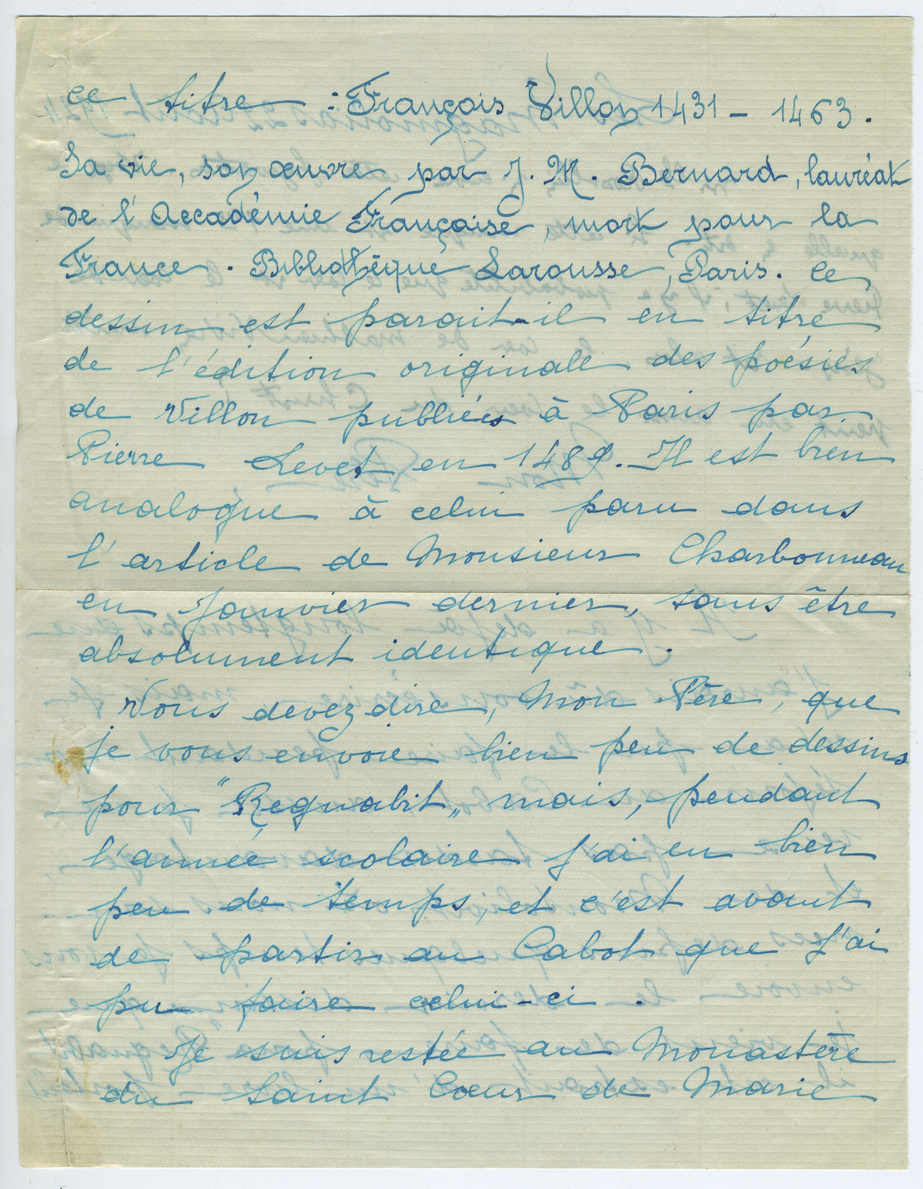 ce titre : François Villon 1431 - 1463.
Sa vie, son œuvre par J. M. Bernard, lauréat
de l'Accadémie Française, mort pour la
France. Bibliothèque Larousse, Paris. Ce
dessin est parait-il en titre
de l'édition originale des poésies
de Villon publiées à Paris par
Pierre Levet en 1489. Il est bien
analogue à celui paru dans
l'article de Monsieur Charbonneau
en Janvier dernier, sans être
absolument identique.
Vous devez dire, Mon Père, que
je vous envoie bien peu de dessins
pour "Regnabit" mais, pendant
l'année scolaire j'ai eu bien
peu de temps, et c'est avant
de partir au Cabot que j'ai
pu faire celui-ci.
Je suis restée au Monastère
du Saint Cœur de Marie